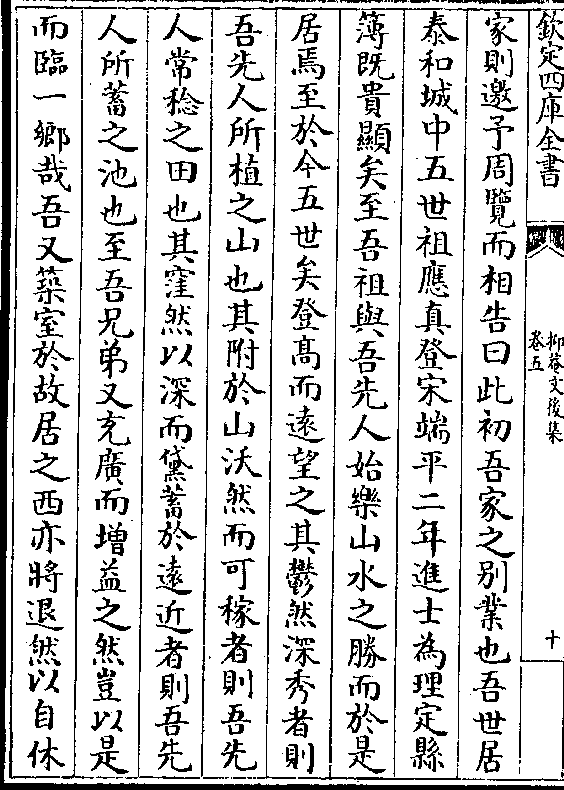 欽定四庫全書
抑菴文後集
卷五
十
家則邀予周覽而相告曰此初吾家之别業也吾世居
泰和城中五世祖應真登宋端平二年進士為理定縣
簿既貴顯矣至吾祖與吾先人始樂山水之勝而於是
居焉至於今五世矣登髙而遠望之其鬱然深秀者則
吾先人所植之山也其附於山沃然而可稼者則吾先
人常稔之田也其窪然以深而黛蓄於遠近者則吾先
人所蓄之池也至吾兄弟又充廣而增益之然豈以是
而臨一鄉哉吾又築室於故居之西亦將退然以自休